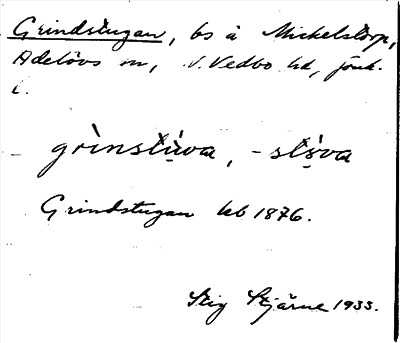 Grindstugan, bs å Mickelstorp,
Adelövs sn, N. Vedbo hd, Jönk.
l.
grìnstu̇̀va, -stɷ̇va
Grindstugan kb 1876.
Stig Stjärne 1933.